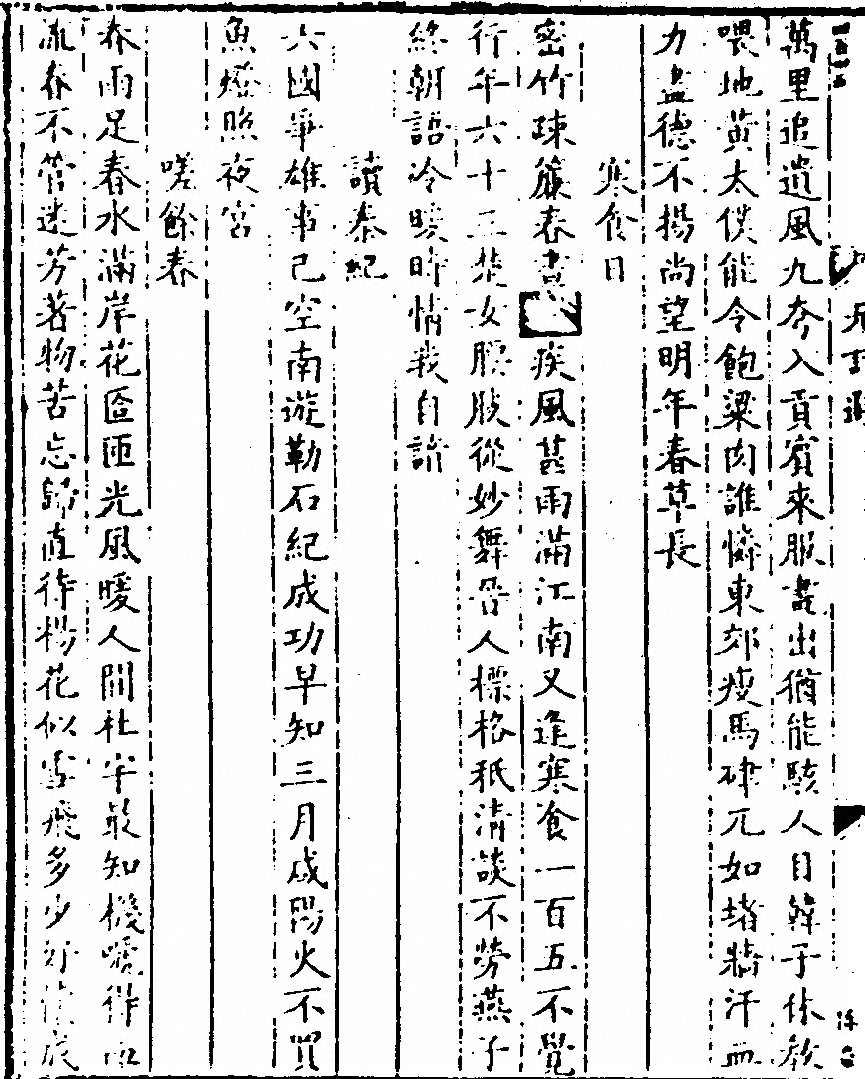 萬里追遺風九夸入貢賓來服畫出猶能駭人目韓子休教
喂地黃太僕能令飽粱肉誰憐東郊瘦馬硉兀如堵牆汗血
力盡德不揚尚望明年春草長
寒食日
密竹疎簾春晝疾風甚雨滿江南又逢寒食一百五不覺
行年六十三楚女腰肢從妙舞晉人標格秖清談不勞燕子
終朝語冷暖時情我自諳
讀秦紀
六國爭雄事已空南遊勒石紀成功早知三月咸陽火不買
魚燈照夜宮
嗟餘春
春雨足春水滿岸花匼匝光風暖人間杜宇最知機喚得
流春不管迷芳著物苦忘歸直待楊花似雪飛多少好懷